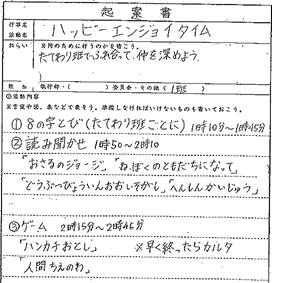 起案書
行事名
活動名
ハッピーエンジョイタイム
ねらい
※何のために行うのかを書こう。
たてわり班でふれ合って、仲を深めよう。
担当 執行部・( )委員会・その他( 1班 )
①活動内容
※言葉や図、表などで表そう。準備しなければいけないものも書いておこう。
①8の字とび(たてわり班ごとに) 1時10分〜1時45分
②読み聞かせ 1時50〜2時10
「おさるのジョージ」「ねぼくのともだちになって」
「どうぶつびょういんおおいそがし」「へんしんかいじゅう」
③ゲーム 2時15分〜2時45分
「ハンカチおとし」 ※早く終ったらカルタ
「人間ちえのわ」